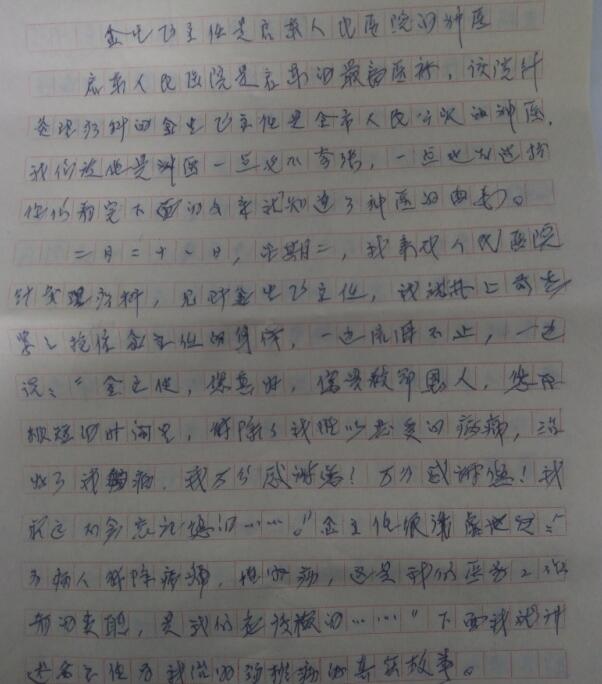 金生飞主任是启东人民医院的神医
启东人民医院是启东的最高医科,该院针
灸理疗科的金生飞主任是全市人民公认的神医,
我们说他是神医一点也不夸张,一点也
你们看完下面的文章就知道了神医的由来。
二月二十八日,星期二,我来找人民医院
针灸理疗科,见到金生飞主任,我就冲上前去
紧紧抱住金主任的身体,一边流泪不止,一边
说:“金主任,您真好,您是救命恩人,您在
极短的时间里,解除了我难以忍受的病痛,治
好了我病,我万分感谢您!万分感谢您!我
永远不会忘记您的……。”金主任很谦虚地说:“
为病人解除病痛,治好病,这是我们医务工作
者的责职,是我们应该做的……”下面我就讲
述金主任为我治的颈椎病的真实故事。